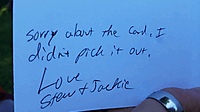 Sorry about the card. I
didn't pick it out.
Love
Stew + Jackie